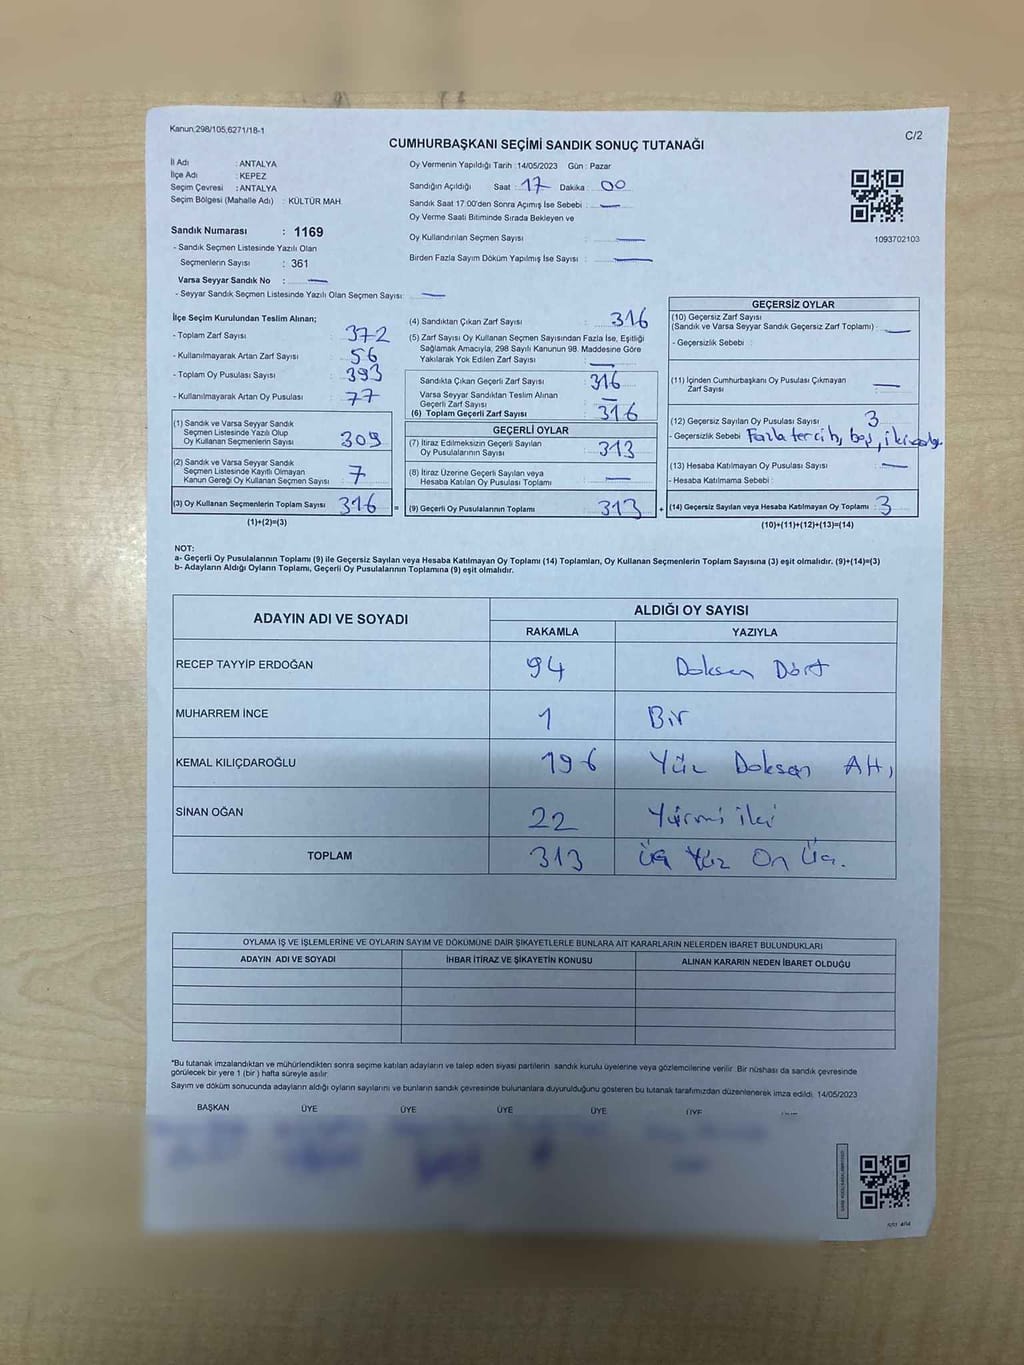 Kanun;298/105,6271/18-1
C/2
CUMHURBAŞKANI SEÇİMİ SANDIK SONUÇ TUTANAĞI
İl Adı : ANTALYA
İlçe Adı : KEPEZ
Seçim Çevresi : ANTALYA
Seçim Bölgesi (Mahalle Adı) : KÜLTÜR MAH.
Sandık Numarası : 1169
- Sandık Seçmen Listesinde Yazılı Olan
Seçmenlerin Sayısı : 361
Varsa Seyyar Sandık No : —
- Seyyar Sandık Seçmen Listesinde Yazılı Olan Seçmen Sayısı: —
Oy Vermenin Yapıldığı Tarih :14/05/2023 Gün : Pazar
Sandığın Açıldığı Saat : 17 Dakika : 00
Sandık Saat 17:00'den Sonra Açımış İse Sebebi : —
Oy Verme Saati Bitiminde Sırada Bekleyen ve
Oy Kullandırılan Seçmen Sayısı : —
Birden Fazla Sayım Döküm Yapılmış İse Sayısı : —
1093702103
İlçe Seçim Kurulundan Teslim Alınan;
- Toplam Zarf Sayısı : 372
- Kullanılmayarak Artan Zarf Sayısı : 56
- Toplam Oy Pusulası Sayısı : 393
- Kullanılmayarak Artan Oy Pusulası : 77
(1) Sandık ve Varsa Seyyar Sandık
Seçmen Listesinde Yazılı Olup
Oy Kullanan Seçmenlerin Sayısı : 309
(2) Sandık ve Varsa Seyyar Sandık
Seçmen Listesinde Kayıtlı Olmayan
Kanun Gereği Oy Kullanan Seçmen Sayısı : 7
(3) Oy Kullanan Seçmenlerin Toplam Sayısı : 316 =
(1)+(2)=(3)
(4) Sandıktan Çıkan Zarf Sayısı : 316
(5) Zarf Sayısı Oy Kullanan Seçmen Sayısından Fazla İse, Eşitliği
Sağlamak Amacıyla, 298 Sayılı Kanunun 98. Maddesine Göre
Yakılarak Yok Edilen Zarf Sayısı : —
Sandıkta Çıkan Geçerli Zarf Sayısı : 316
Varsa Seyyar Sandıktan Teslim Alınan
Geçerli Zarf Sayısı : —
(6) Toplam Geçerli Zarf Sayısı : 316
GEÇERLİ OYLAR
(7) İtiraz Edilmeksizin Geçerli Sayılan
Oy Pusulalarının Sayısı : 313
(8) İtiraz Üzerine Geçerli Sayılan veya
Hesaba Katılan Oy Pusulası Toplamı : —
(9) Geçerli Oy Pusulalarının Toplamı : 313 +
GEÇERSİZ OYLAR
(10) Geçersiz Zarf Sayısı
(Sandık ve Varsa Seyyar Sandık Geçersiz Zarf Toplamı) : —
- Geçersizlik Sebebi :
(11) İçinden Cumhurbaşkanı Oy Pusulası Çıkmayan
Zarf Sayısı : —
(12) Geçersiz Sayılan Oy Pusulası Sayısı : 3
- Geçersizlik Sebebi : Fazla tercih, boş,
(13) Hesaba Katılmayan Oy Pusulası Sayısı : —
- Hesaba Katılmama Sebebi :
(14) Geçersiz Sayılan veya Hesaba Katılmayan Oy Toplamı : 3
(10)+(11)+(12)+(13)=(14)
NOT:
a- Geçerli Oy Pusulalarının Toplamı (9) ile Geçersiz Sayılan veya Hesaba Katılmayan Oy Toplamı (14) Toplamları, Oy Kullanan Seçmenlerin Toplam Sayısına (3) eşit olmalıdır. (9)+(14)=(3)
b- Adayların Aldığı Oyların Toplamı, Geçerli Oy Pusulalarının Toplamına (9) eşit olmalıdır.
ADAYIN ADI VE SOYADI ALDIĞI OY SAYISI
RAKAMLA YAZIYLA
RECEP TAYYİP ERDOĞAN 94 Doksan Dört
MUHARREM İNCE 1 Bir
KEMAL KILIÇDAROĞLU 196 Yüz Doksan Altı
SİNAN OĞAN 22 Yirmi iki
TOPLAM 313 Üç Yüz On Üç.
OYLAMA İŞ VE İŞLEMLERİNE VE OYLARIN SAYIM VE DÖKÜMÜNE DAİR ŞİKAYETLERLE BUNLARA AİT KARARLARIN NELERDEN İBARET BULUNDUKLARI
ADAYIN ADI VE SOYADI İHBAR İTİRAZ VE ŞİKAYETİN KONUSU ALINAN KARARIN NEDEN İBARET OLDUĞU
*Bu tutanak imzalandıktan ve mühürlendikten sonra seçime katılan adayların ve talep eden siyasi partilerin sandık kurulu üyelerine veya gözlemcilerine verilir. Bir nüshası da sandık çevresinde
görülecek bir yere 1 (bir) hafta süreyle asılır.
Sayım ve döküm sonucunda adayların aldığı oyların sayılarını ve bunların sandık çevresinde bulunanlara duyurulduğunu gösteren bu tutanak tarafımızdan düzenlenerek imza edildi. 14/05/2023
BAŞKAN ÜYE ÜYE ÜYE ÜYE ÜYE